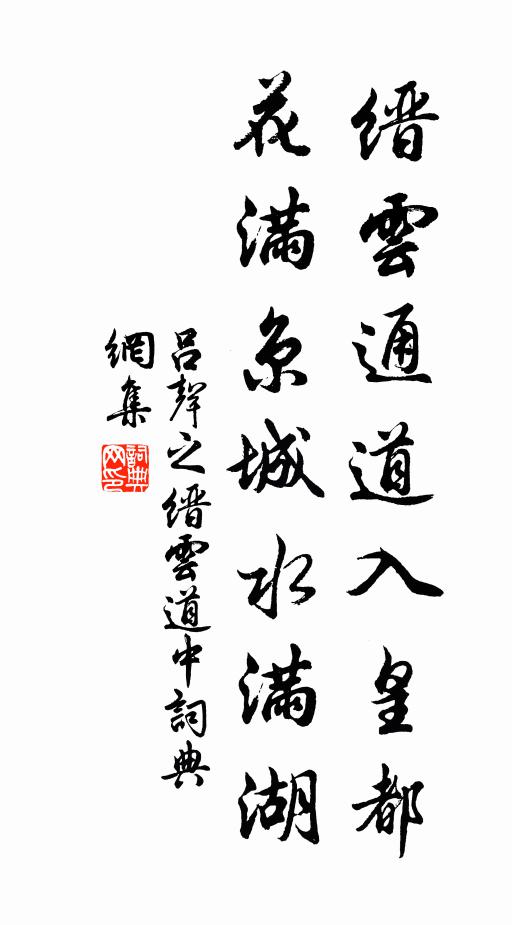 缙雲通道入皇都
花满京城水满湖
呂聲之缙雲道中詞典
網集
詞典
网印